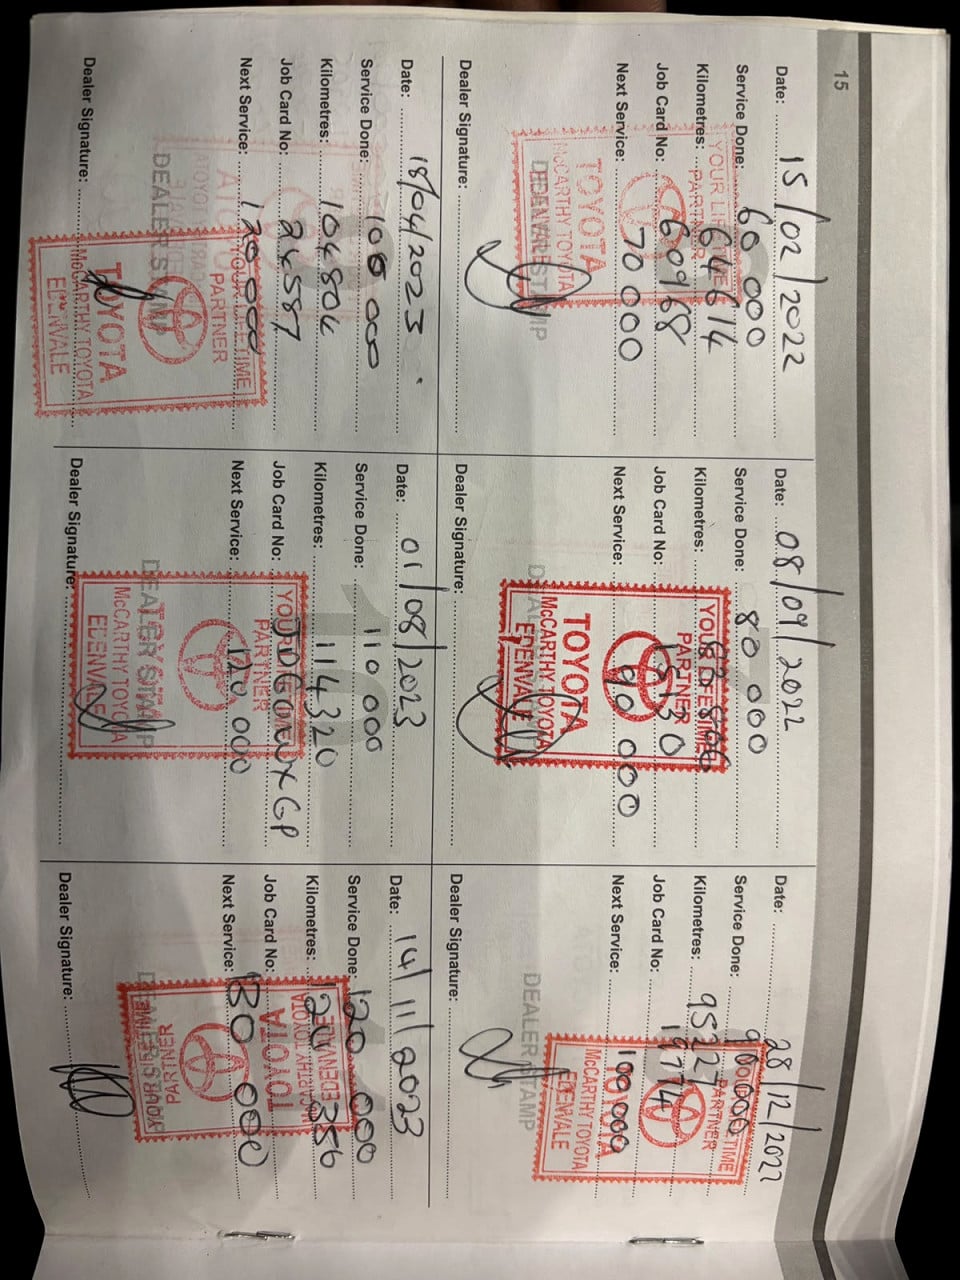 15
Date: 15/02/2022
Service Done: 60 000
Kilometres: 64614
Job Card No: 60968
Next Service: 70 000
YOUR LIFETIME
PARTNER
TOYOTA
McCARTHY TOYOTA
EDENVALE
DEALER STAMP
Dealer Signature:
Date: 08/09/2022
Service Done: 80 000
Kilometres:
Job Card No:
Next Service: 90 000
YOUR LIFETIME
PARTNER
TOYOTA
McCARTHY TOYOTA
EDENVALE
DEALER STAMP
Dealer Signature:
Date: 28/12/2022
Service Done: 90 000
Kilometres: 95227
Job Card No: 19774
Next Service: 100 000
YOUR LIFETIME
PARTNER
TOYOTA
McCARTHY TOYOTA
EDENVALE
DEALER STAMP
Dealer Signature:
Date: 18/04/2023
Service Done: 100 000
Kilometres: 104804
Job Card No: 24587
Next Service: 120 000
YOUR LIFETIME
PARTNER
TOYOTA
McCARTHY TOYOTA
EDENVALE
DEALER STAMP
Dealer Signature:
Date: 01/08/2023
Service Done: 110 000
Kilometres: 114320
Job Card No:
Next Service: 120 000
YOUR LIFETIME
PARTNER
McCARTHY TOYOTA
EDENVALE
DEALER STAMP
Dealer Signature:
Date: 14/11/2023
Service Done: 120 000
Kilometres: 120 356
Job Card No:
Next Service: 130 000
EDENVALE
McCARTHY TOYOTA
TOYOTA
PARTNER
YOUR LIFETIME
DEALER STAMP
Dealer Signature: